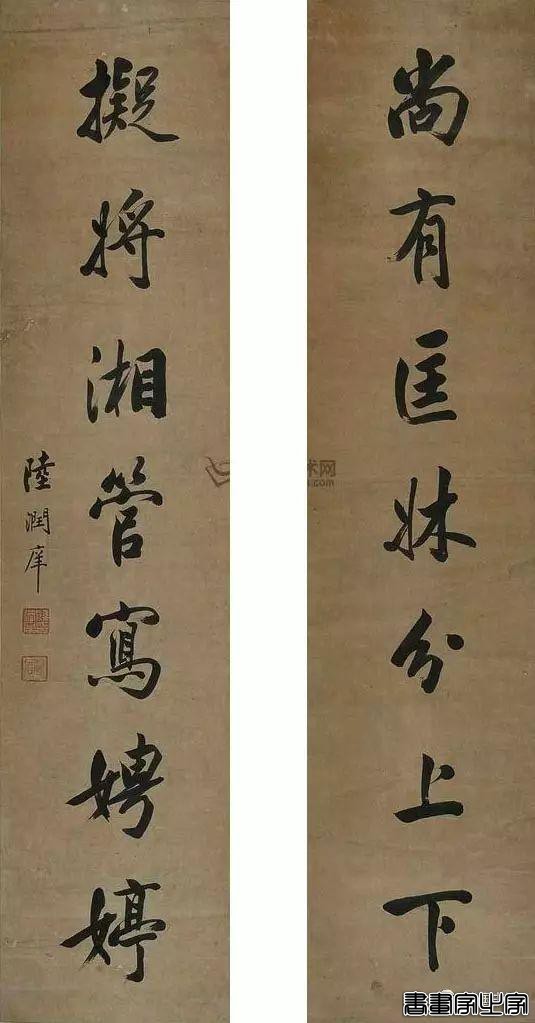 尚有匡牀分上下
擬將湘管寫娉婷
陸潤庠
术网
書畫家之家